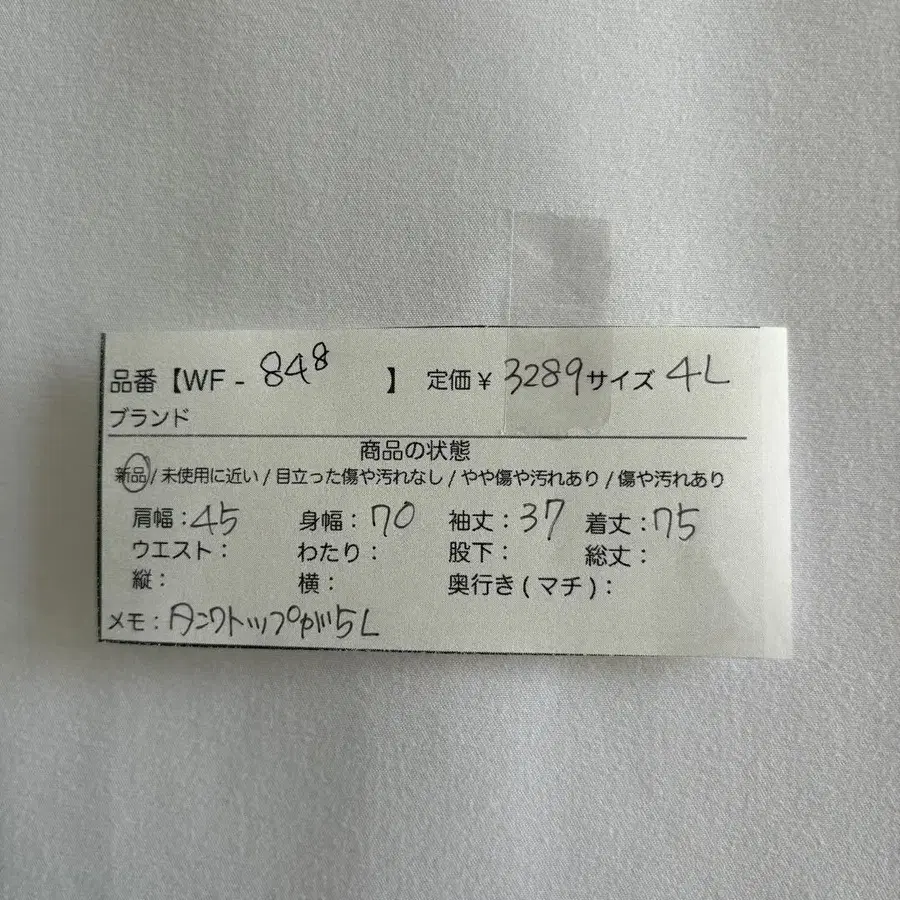 品番【WF - 848 】 定価¥ 3289 サイズ 4L
ブランド
商品の状態
新品 / 未使用に近い / 目立った傷や汚れなし / やや傷や汚れあり / 傷や汚れあり
肩幅：45 身幅：70 袖丈：37 着丈：75
ウエスト： わたり： 股下： 総丈：
縦： 横： 奥行き ( マチ )：
メモ：タンクトップが5L